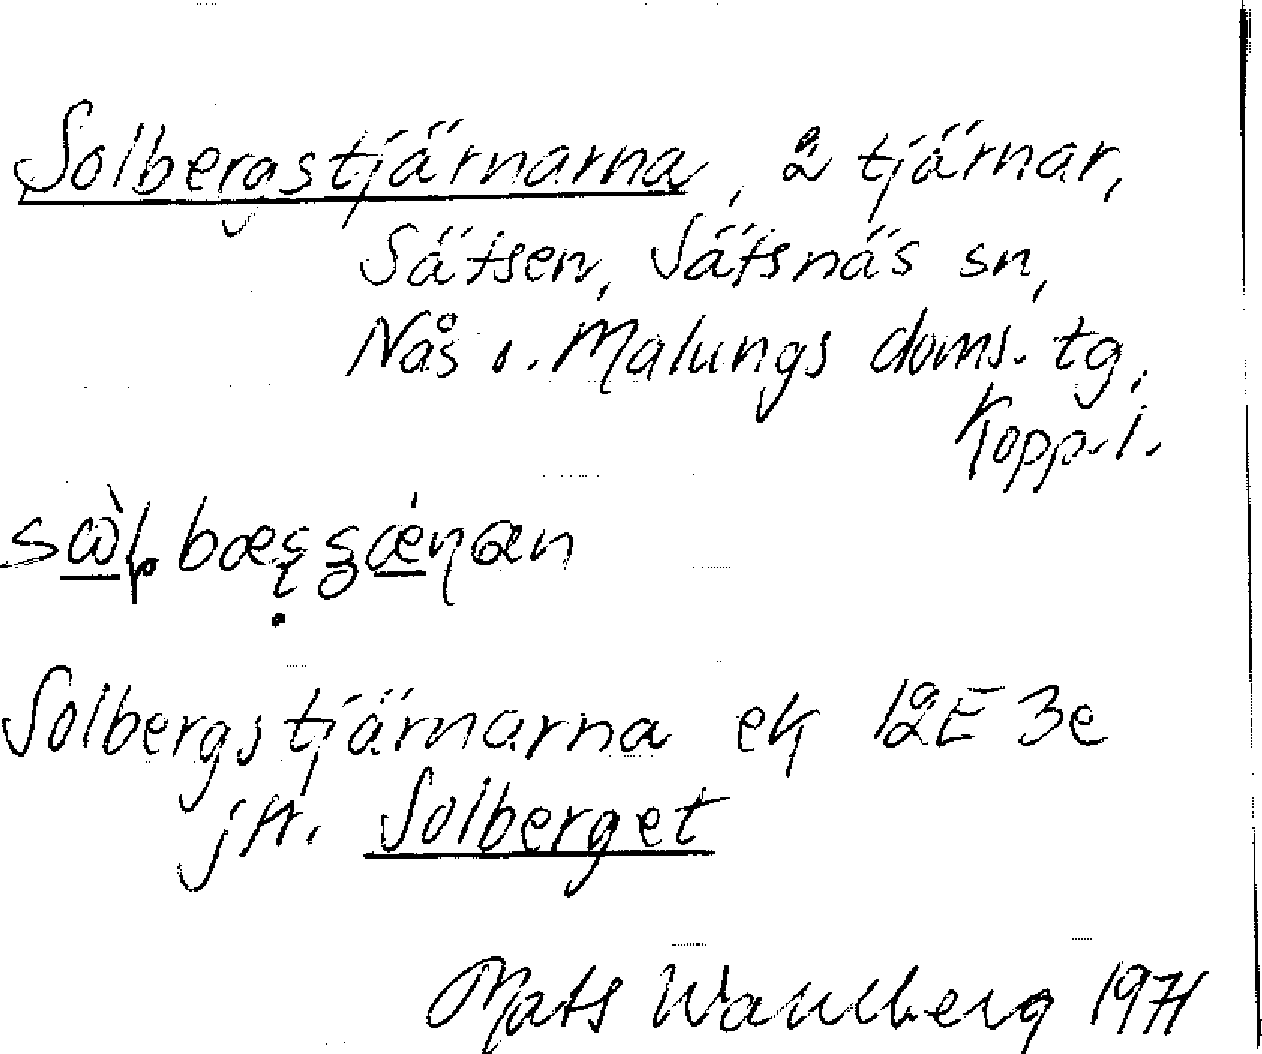 Solbergstjärnarna, 2 tjärnar,
Sätsen, Sätsnäs sn,
Nås o. Malungs doms. tg,
Kopp. l.
Solbergstjärnarna ek 12E 3e
jfr. Solberget
Mats Wahlberg 1971